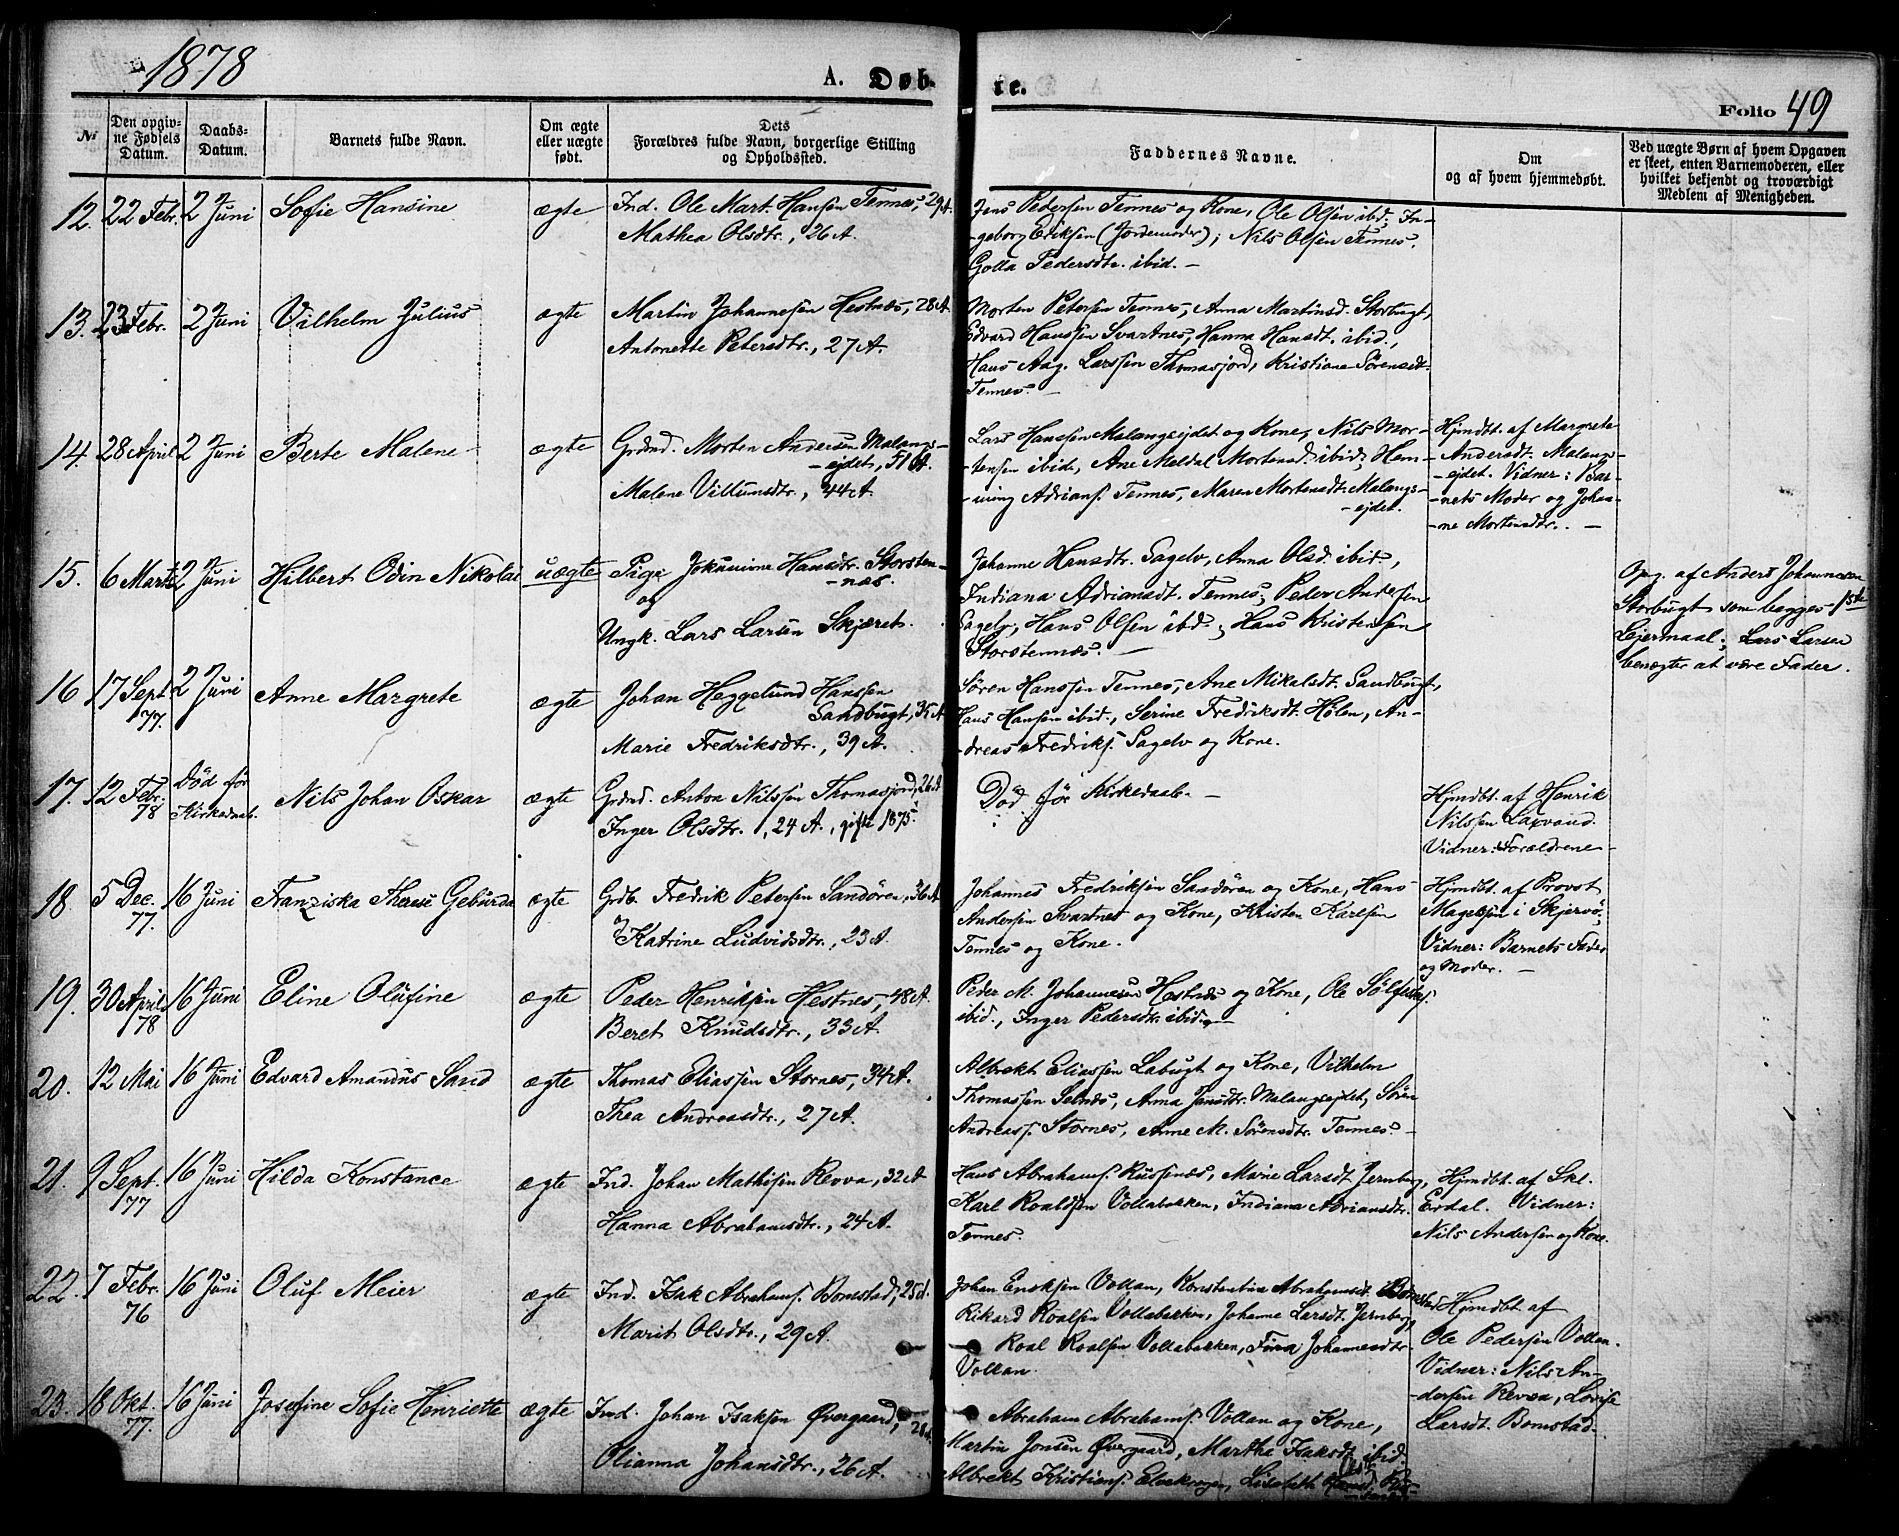 1878
A. Døb-
te.
Folio 49
№
Den opgiv-
ne Fødsels
Datum.
Daabs-
Datum.
Barnets fulde Navn.
Om ægte
eller uægte
født.
Dets
Forældres fulde Navn, borgerlige Stilling
og Opholdssted.
Faddernes Navne.
Om
og af hvem hjemmedøbt.
Ved uægte Børn af hvem Opgaven
er skeet, enten Barnemoderen, eller
hvilket bekjendt og troværdigt
Medlem af Menigheden.
12. 22 Febr. 2 Juni Sofie Hansine ægte
Ind. Ole Mart. Hansen Tennes, 29 A.
Mathea Olsdtr., 26 A.
Jens Pedersen Tennes og Kone, Ole Olsen ibid. In-
-geborg Eriksen (Jordemoder); Nils Olsen Tennes.
Golla Pedersdtr. ibid. –
13. 23 Febr. 2 Juni Vilhelm Julius ægte
Martin Johannesen Hestnæs, 28 A.
Antonette Petersdtr., 27 A.
Morten Petersen Tennes, Anna Martinsd. Storbugt,
Edvard Hanssen Svartnes, Hanna Hansdt. ibid.,
Hans Aag. Larssen Thomasjord, Kristiane Sørensdt.
Tennes. –
14. 28 April 2 Juni Berte Malene ægte
Grdnd. Morten Andersen Malangs-
-ejdet, 51 A.
Malene Villumsdtr., 44 A.
Lars Hanssen Malangsejdet og Kone, Nils Mor-
-tensen ibid., Ane Meldal Mortensd. ibid., Hem-
-ning Adrians. Tennes, Maren Mortensdt. Malangs-
-ejdet.
Hjmdbt. af Margrete
Andersdt. Malangs-
-ejdet. Vidner: Bar-
-nets Moder og Johan-
-ne Mortensdtr. –
15. 6 Marts 2 Juni Hilbert Odin Nikolai uægte
Pige Hansdtr. Storsten-
-næs.
og
Ungk. Lars Larsen
Johanne Hansdtr. Sagelv, Anna Olsd. ibid.,
Indiana Adriansdt. Tennes, Peder Andersen
Sagelv, Hans Olsen ibd., Hans Kristensen
Storstennæs. –
Opg. af Anders Johannesen
Storbugt som begges 1ste
Lejermaal; Lars Larsen
benægter at være Fader.
16 17 Sept. 77. 2 Juni Anne Margrete ægte
Johan Heggelund Hanssen
Sandbugt, 35 A
Marie Fredriksdtr., 39 A.
Søren Hanssen Tennes, Ane Mikalsdt. Sandbugt,
Hans Hansen ibid., Serine Fredriksdt. Holen, An-
-dreas Fredriks. Sagelv og Kone.
17. 12 Febr. 78 Død før
Kirkedaab. Nils Johan Oskar ægte
Grdnd. Anton Nilssen Thomasjord, 26 A
Inger Olsdtr., 24 A., gifte 1875.
Død før Kirkedaab. –
Hjmdbt. af Henrik
Nilssen Laxvand.
Vidner: Forældrene –
18. 5 Dec. 77. 16 Juni Franziska Therese Geburda ægte
Grdb. Fredrik Petersen Sandøren, 36 A
Katrine Ludvidsdtr., 23 A.
Johannes Fredriksen Sandøren og Kone, Hans
Andersen Svartnes og Kone, Kristen Karlsen
Tennes og Kone.
Hjmdbt. af Provst
Magelsen i Skjervø,
Vidner: Barnets Fader
og Moder. –
19. 30 April 78 16 Juni Eline Olufine ægte
Peder Henriksen Hestnes, 48 A.
Beret Knudsdtr., 33 A.
Peder M. Johannesen Hestnæs og Kone, Ole Sølfests.
ibid., Inger Pedersdt. ibid. –
20. 12 Mai 16 Juni Edvard Amandus Sand ægte
Thomas Eliassen Stornes, 34 A.
Thea Andreasdtr., 27 A.
Albrekt Eliassen Labugt og Kone, Vilhelm
Thomassen Selnæs, Anna Jansdtr. Malangsejdet, Søren
Andreass. Stornes, Anne M. Sørensdtr. Tennes. –
21. 9 Sept. 77 16 Juni Hilda Konstance ægte
Ind. Johan Mathisen Revva, 32 A
Hanna Abrahamsdtr., 24 A.
Hans Abrahams. Russenæs, Marie Larsdt. Jernberg,
Karl Roaldsen Vollabakken, Indiana Adriansdtr.
Tennes.
Hjmdbt. af Skl.
Erdal. Vidner:
Nils Andersen og Kone.
22. 7 Febr. 76 16 Juni Oluf Meier ægte
Ind. Isak Abrahams. Bomstad, 25 A.
Marit Olsdtr., 29 A.
Johan Vollan, Konstantine Abrahamsdt.
Rikard Roalsen Vollabakken, Johanne Larsdt. Jernberg
Roal Roalsen Vollabakken, Johannesdtr.
Vollan.
Hjmdbt. af
Ole Pedersen Vollan.
Vidner: Nils An-
-dersen Revva, Lovise
Larsdt. Bomstad.
23. 18 Okt. 77. 16 Juni Josefine Sofie Henriette ægte
Ind. Johan Isaksen Øvergaard,
Olianna Johansdtr., 26 A.
Abraham Abrahams. Vollan og Kone,
Martin Jonsen Øvergaard, Martha Isaksdt. ibid.
Albrekt Kristians. Lisabeth